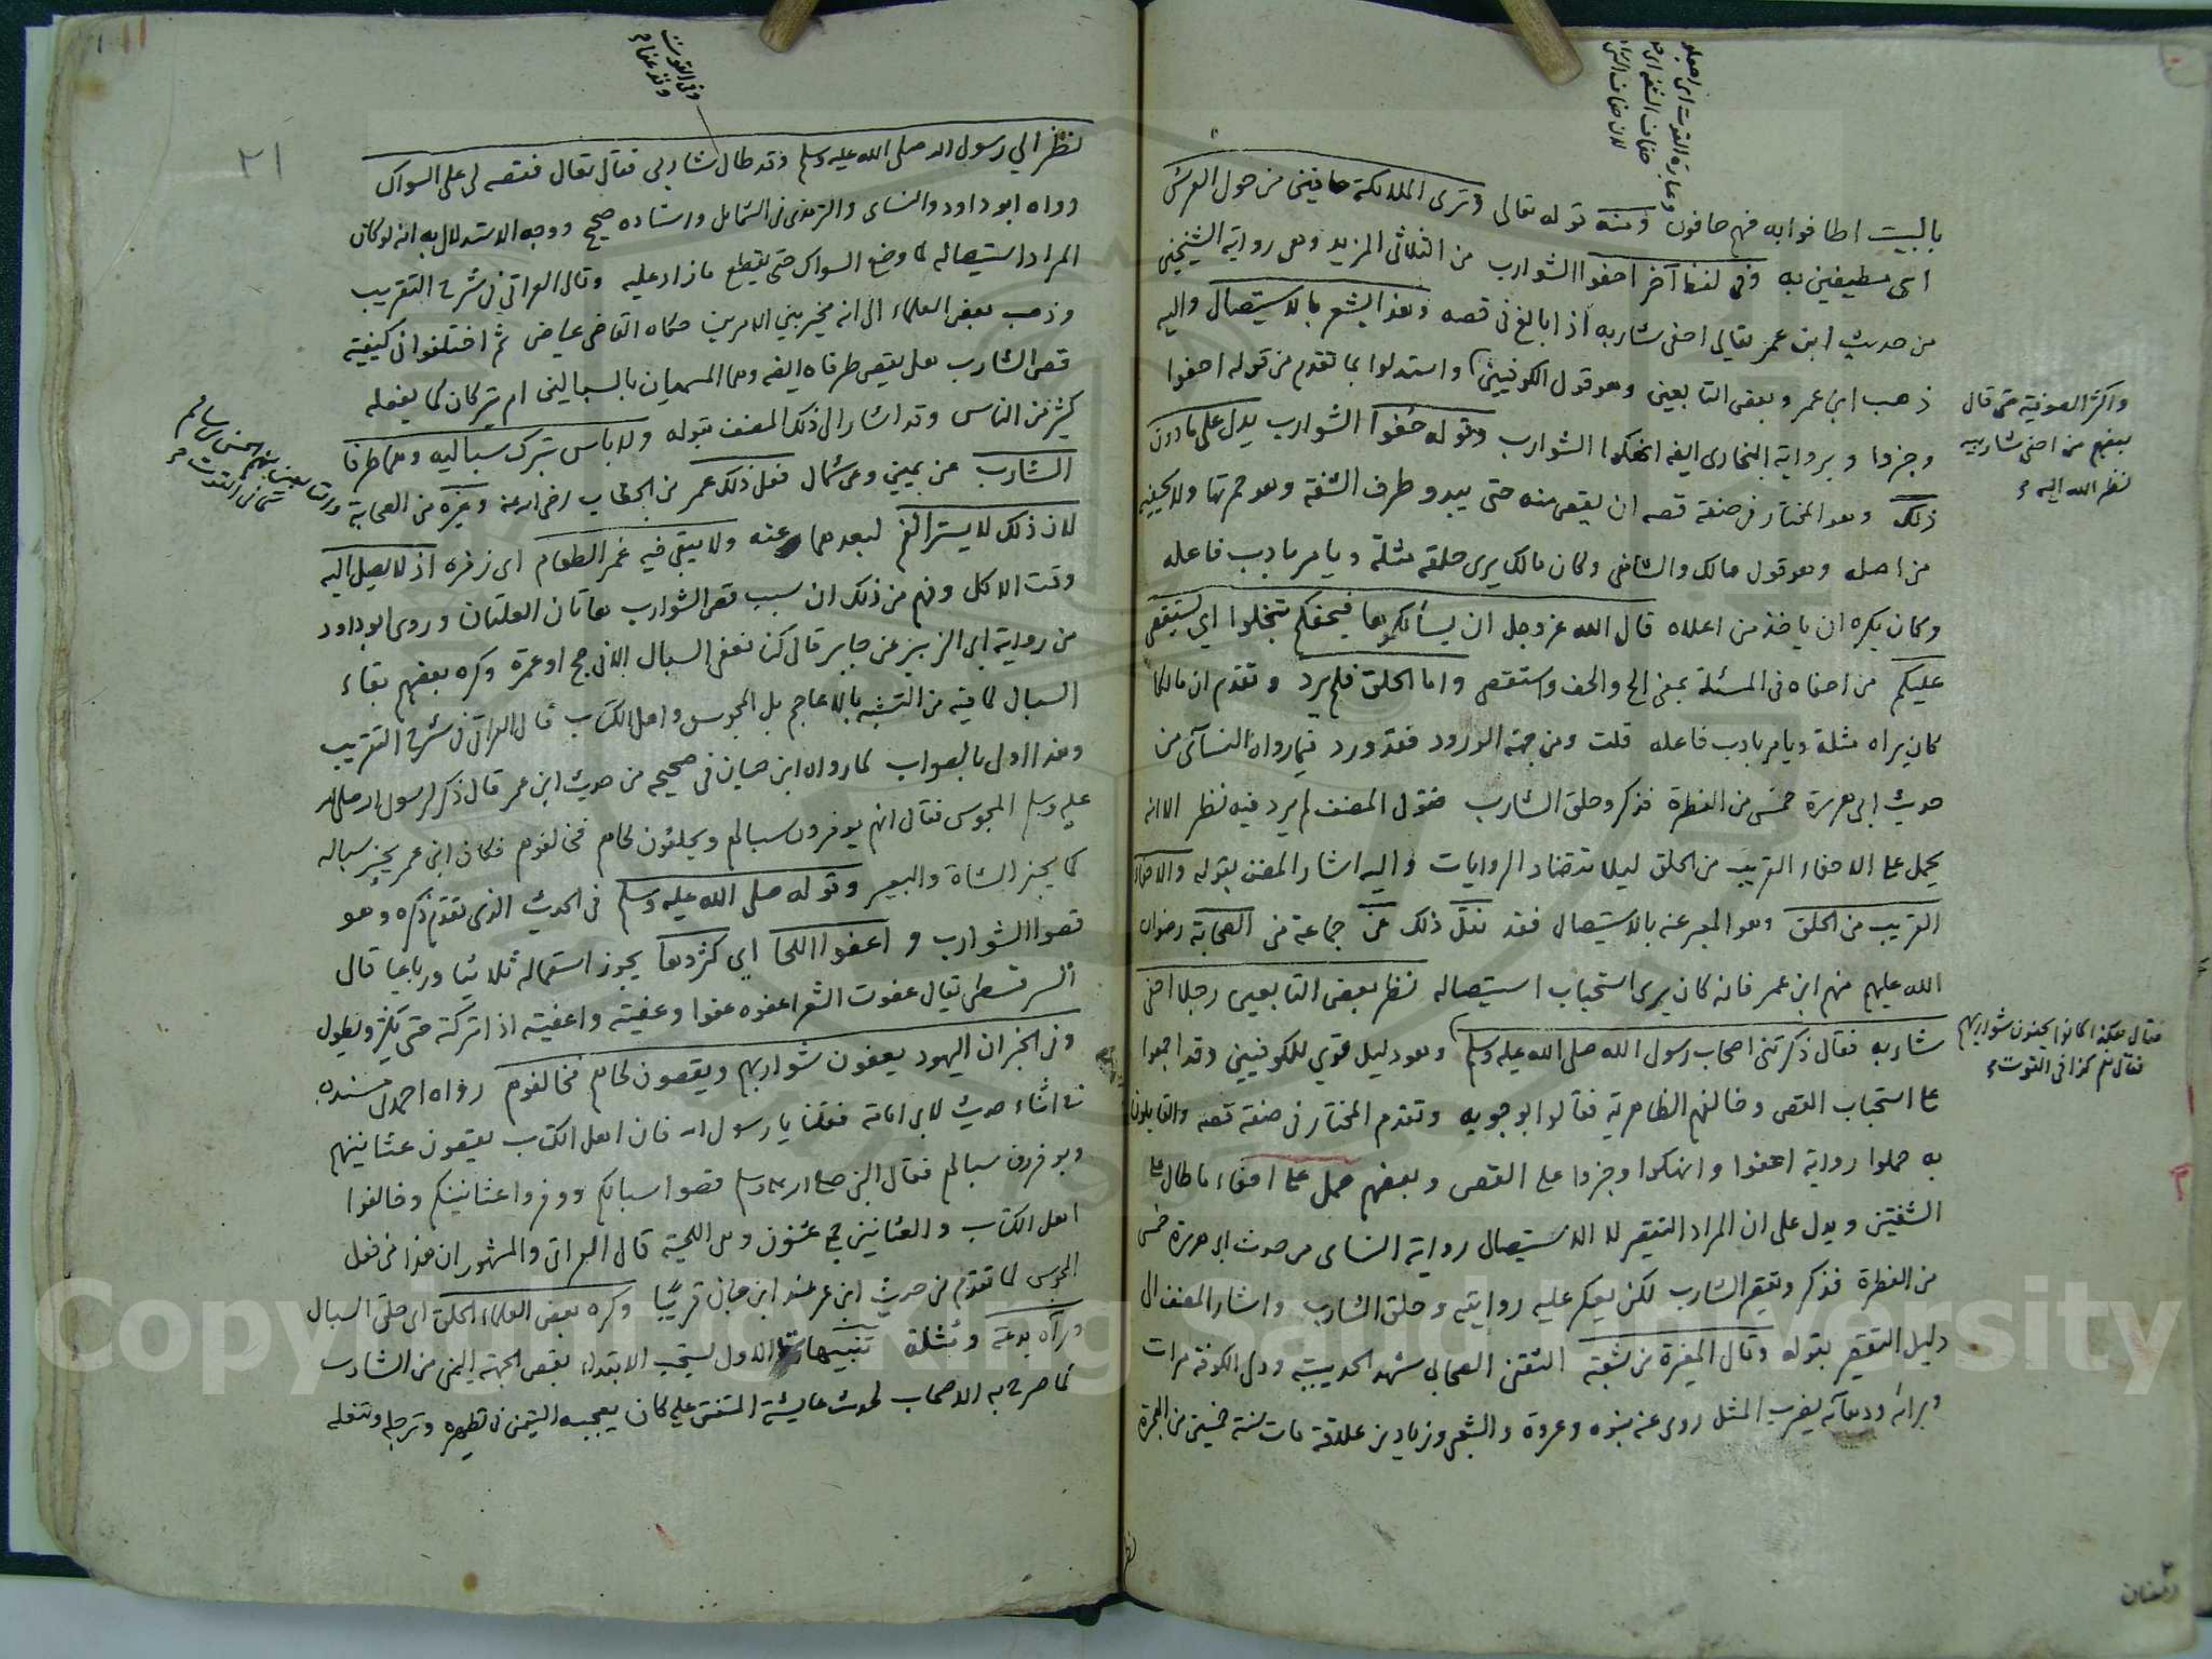 بالبيت اطافوا به فهم حافون ومنه قوله تعالى وترى الملائكة حافين من حول العرش
اى مطيفين به وفى لفظ آخر احفوا الشوارب من الثلاثى المزيد وهى رواية الشيخين
من حديث ابن عمر يقال احفى شاربه اذا بالغ فى قصه وهذا يشعر بالاستيصال واليه
ذهب ابن عمر وبعض التابعين وهو قول الكوفيين واستدلوا بما تقدم من قوله احفوا
وجزوا وبرواية البخارى ايضا انهكوا الشوارب وقوله حفوا الشوارب يدل على ما دون
ذلك وهو المختار فى صفة قصه ان يقص منه حتى يبدو طرف الشفة وهو حمرتها ولا يحفيه
من اصله وهو قول مالك والشافعى وكان مالك يرى حلقه مثلة ويامر بادب فاعله
وكان يكره ان ياخذ من اعلاه قال الله عز وجل ان يسألكموها فيحفكم تبخلوا اي يستقصى
عليكم من احفاه فى المسئلة بمعنى الح والحف واستقصى واما الحلق فلم يرد وتقدم ان مالكا
كان يراه مثلة ويامر بادب فاعله قلت ومن جهة الورود فقد ورد فيما رواه النسآئى من
حديث ابى هريرة خمس من الفطرة فذكر وحلق الشارب فقول المصنف لم يرد فيه نظر الا انه
يحمل على الاحفاء القريب من الحلق ليلا تتضاد الروايات واليه اشار المصنف بقوله والاحفاء
القريب من الحلق وهو المعبر عنه بالاستيصال فقد نقل ذلك عن جماعة من الصحابة رضوان
الله عليهم منهم ابن عمر فانه كان يرى استحباب استيصاله نظر بعض التابعين رجلا احفى
شاربه فقال ذكرتنى اصحاب رسول الله صلى الله عليه وسلم وهو دليل قوي للكوفيين وقد اجمعوا
على استحباب القص وخالفهم الظاهرية فقالوا بوجوبه وتقدم المختار فى صفة قصه والقايلون
به حملوا رواية احفوا وانهكوا وجزوا على القص وبعضهم حمل على احفاء ما طال على
الشفتين ويدل على ان المراد التقصير لا الاستيصال رواية النساى من حديث ابى هريرة خمس
من الفطرة فذكر وتقصير الشارب لكن يعكر عليه روايته وحلق الشارب واشار المصنف الى
دليل التقصير بقوله وقال المغيرة بن شعبة الثقفى الصحابى شهد الحديبية وولى الكوفة مرات
وبرائه ودهائه يضرب المثل روى عنه بنوه وعروة والشعبى وزياد بن علاقة مات سنة خمسين من الهجرة
واكثر الصوفية حتى قال
بعضهم من احفى شاربيه
نظر الله اليه
فقال هكذا كانوا يحفون شواربهم
فقال نعم كذا فى القوت
وعبارة القوت اى اجعلوها
حفاف الشفة اى
لان حفاف الشئ
وفى القوت
وقد عفا
٢١
نظر الي رسول الله صلى الله عليه وسلم وقد طال شاربى فقال تعال فقصه لى على السواك
رواه ابو داود والنساى والترمذى فى الشمايل واسناده صحيح ووجه الاستدلال به انه لو كان
المراد استيصاله لما وضع السواك حتى يقطع ما زاد عليه وقال العراقى فى شرح التقريب
وذهب بعض العلماء الى انه مخير بين الامرين حكاه القاضى عياض ثم اختلفوا فى كيفية
قص الشارب هل يقص طرفاه ايضا وهما المسميان بالسبالين ام يتركان كما يفعله
كثير من الناس وقد اشار الى ذلك المصنف بقوله ولا باس بترك سباليه وهما طرفا
الشارب عن يمين وعن شمال فعل ذلك عمر بن الخطاب رضى الله عنه وغيره من الصحابة
لان ذلك لا يستر الفم لبعدهما عنه ولا يبقى فيه غمر الطعام اى زفره اذ لا يصل اليه
وقت الاكل وفهم من ذلك ان سبب قص الشوارب هاتان العلتان وروى ابو داود
من رواية ابى الزبير عن جابر قال كنا نعفى السبال الا فى حج او عمرة وكره بعضهم بقاء
السبال لما فيه من التشبه بالاعاجم بل المجوس واهل الكتاب قال العراقى فى شرح التقريب
وهذا اولى بالصواب لما رواه ابن حبان فى صحيحه من حديث ابن عمر قال ذكر لرسول الله صلى الله
عليه وسلم المجوس فقال انهم يوفرون سبالهم ويحلقون لحاهم فخالفوهم فكان ابن عمر يجز سباله
كما يجز الشاة والبعير وقوله صلى الله عليه وسلم فى الحديث الذى تقدم ذكره وهو
قصوا الشوارب واعفوا اللحا اي كثروها يجوز استعماله ثلاثيا ورباعيا قال
السرقسطى يقال عفوت الشعر اعفوه عفوا وعفيته واعفيته اذا تركته حتى يكثر ويطول
وفى الخبر ان اليهود يعفون شواربهم ويقصون لحاهم فخالفوهم رواه احمد فى مسنده
فى اثناء حديث لابى امامة فقلنا يا رسول الله فان اهل الكتاب يقصون عثانينهم
ويوفرون سبالهم فقال النبى صلى الله عليه وسلم قصوا سبالكم ووفروا عثانينكم وخالفوا
اهل الكتاب والعثانين جمع عثنون وهى اللحية قال العراقى والمشهور ان هذا من فعل
المجوس لما تقدم من حديث ابن عمر عند ابن حبان قريبًا وكره بعض العلماء الحلق اى حلق السبال
ورآه بدعة ومثلة تنبيهات الاول يستحب الابتداء بقص الجهة اليمنى من الشارب
كما صرح به الاصحاب لحديث عايشة المتفق عليه كان يعجبه التيمن فى تطهره وترجله وتنعله